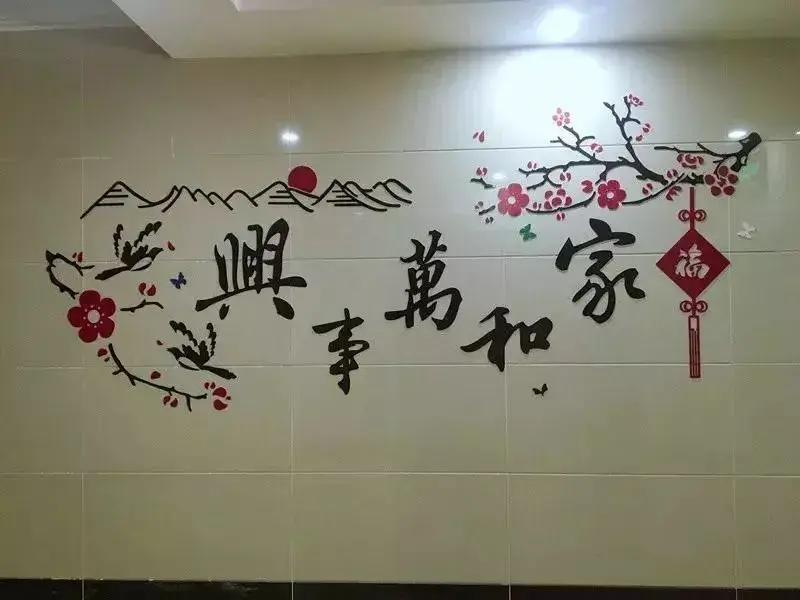 家和萬事興
福